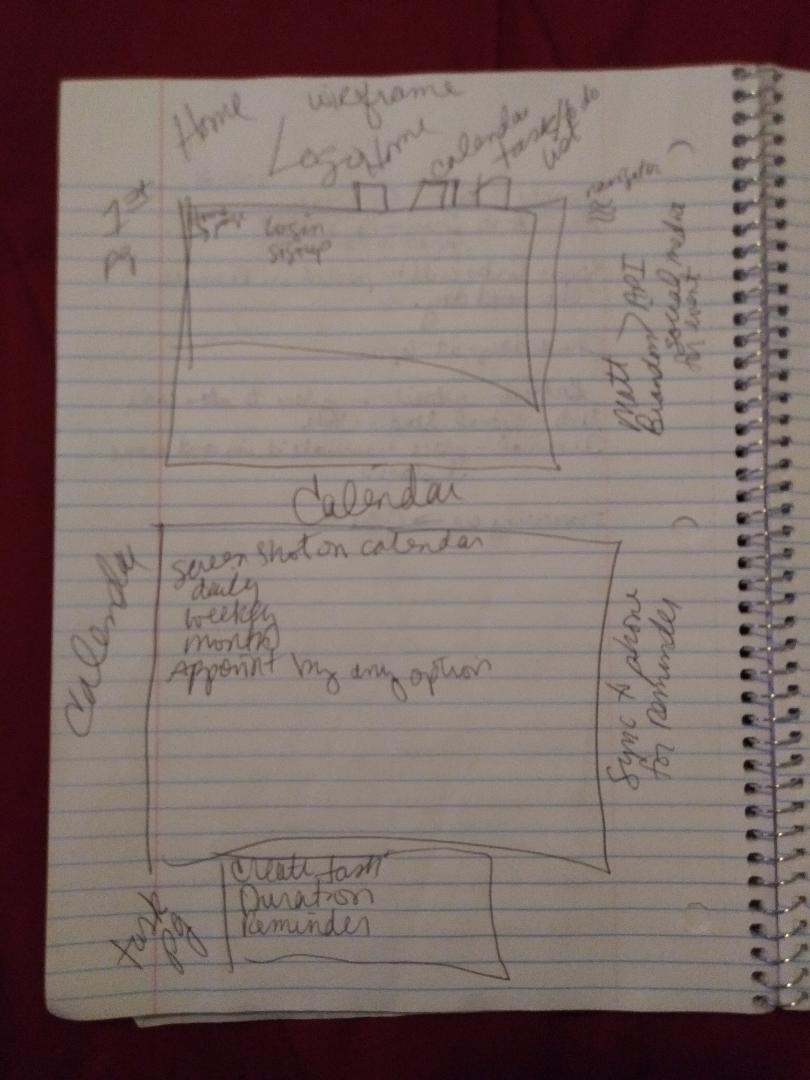 Home wireframe
Logo Home calendar task/to do
list
navigator
1st
pg
Login
signup
Matt
Brandon > API
social media
for event
Calendar
Calendar
screen shot on calendar
daily
weekly
month
Appoint by any option
Sync to phone
for reminder
task
pg
Create task
Duration
Reminder